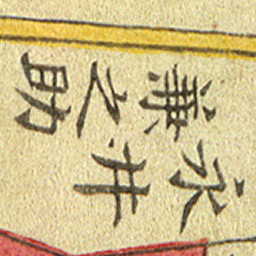 永井
兼之助